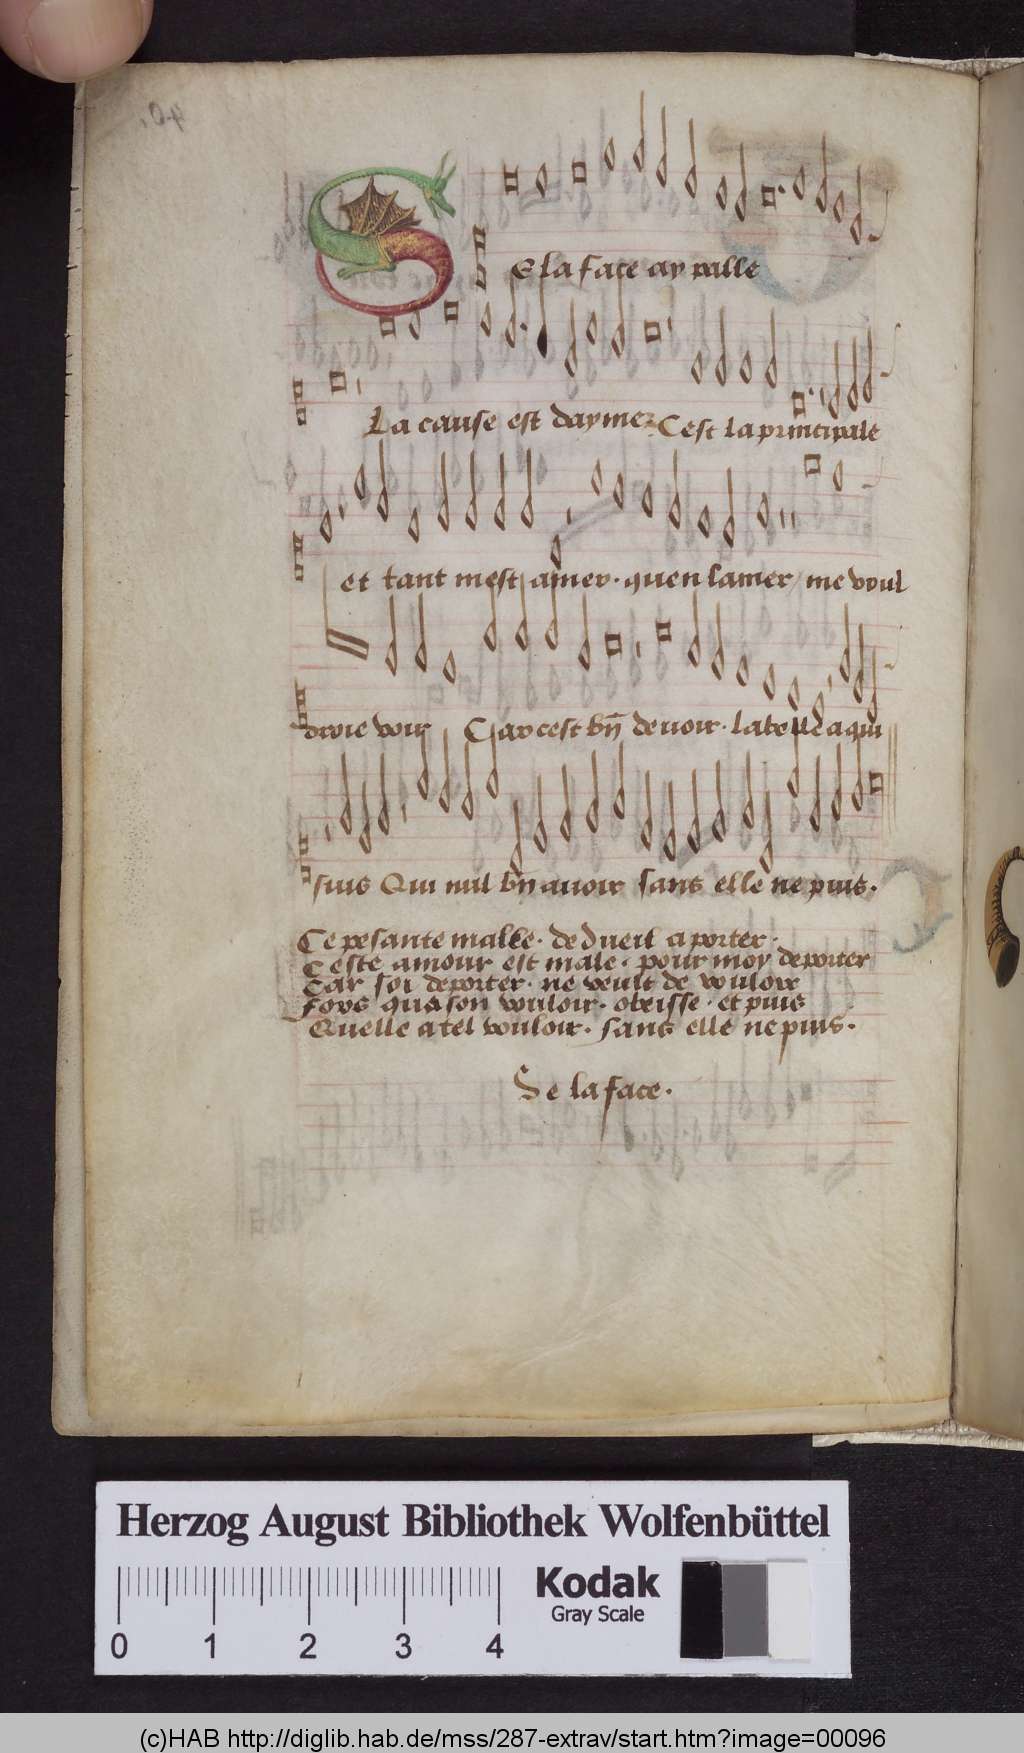 Se la face ay palle
La cause est daymer Cest la principale
et tant mest amer · quen lamer / me voul
droie voir Car cest bn̄ deuoir · la belle a qui
suis Qui nul bn̄ auoir sans elle ne puis ·
Ce pesante malle · de dueil a porter ·
Ceste amour est male · pour moy deporter
Car soi deporter · ne veult de vouloir
Fors qua son vouloir · obeisse · et puis
Quelle a tel vouloir · sans elle ne puis ·
Se la face ·
Herzog August Bibliothek Wolfenbüttel
Kodak
Gray Scale
0 1 2 3 4
(c)HAB http://diglib.hab.de/mss/287-extrav/start.htm?image=00096